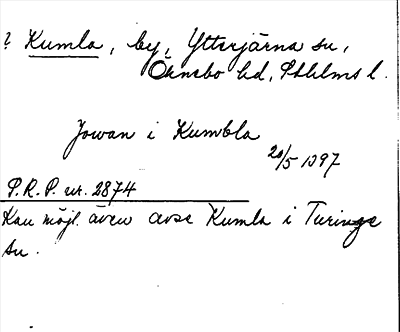 ? Kumla, by, Ytterjärna sn,
Öknebo hd, Sthlms l.
Jowan i Kumbla
20/5 1397
P.R.P. nr. 2874
Kan möjl. även avse Kumla i Turinge
sn.